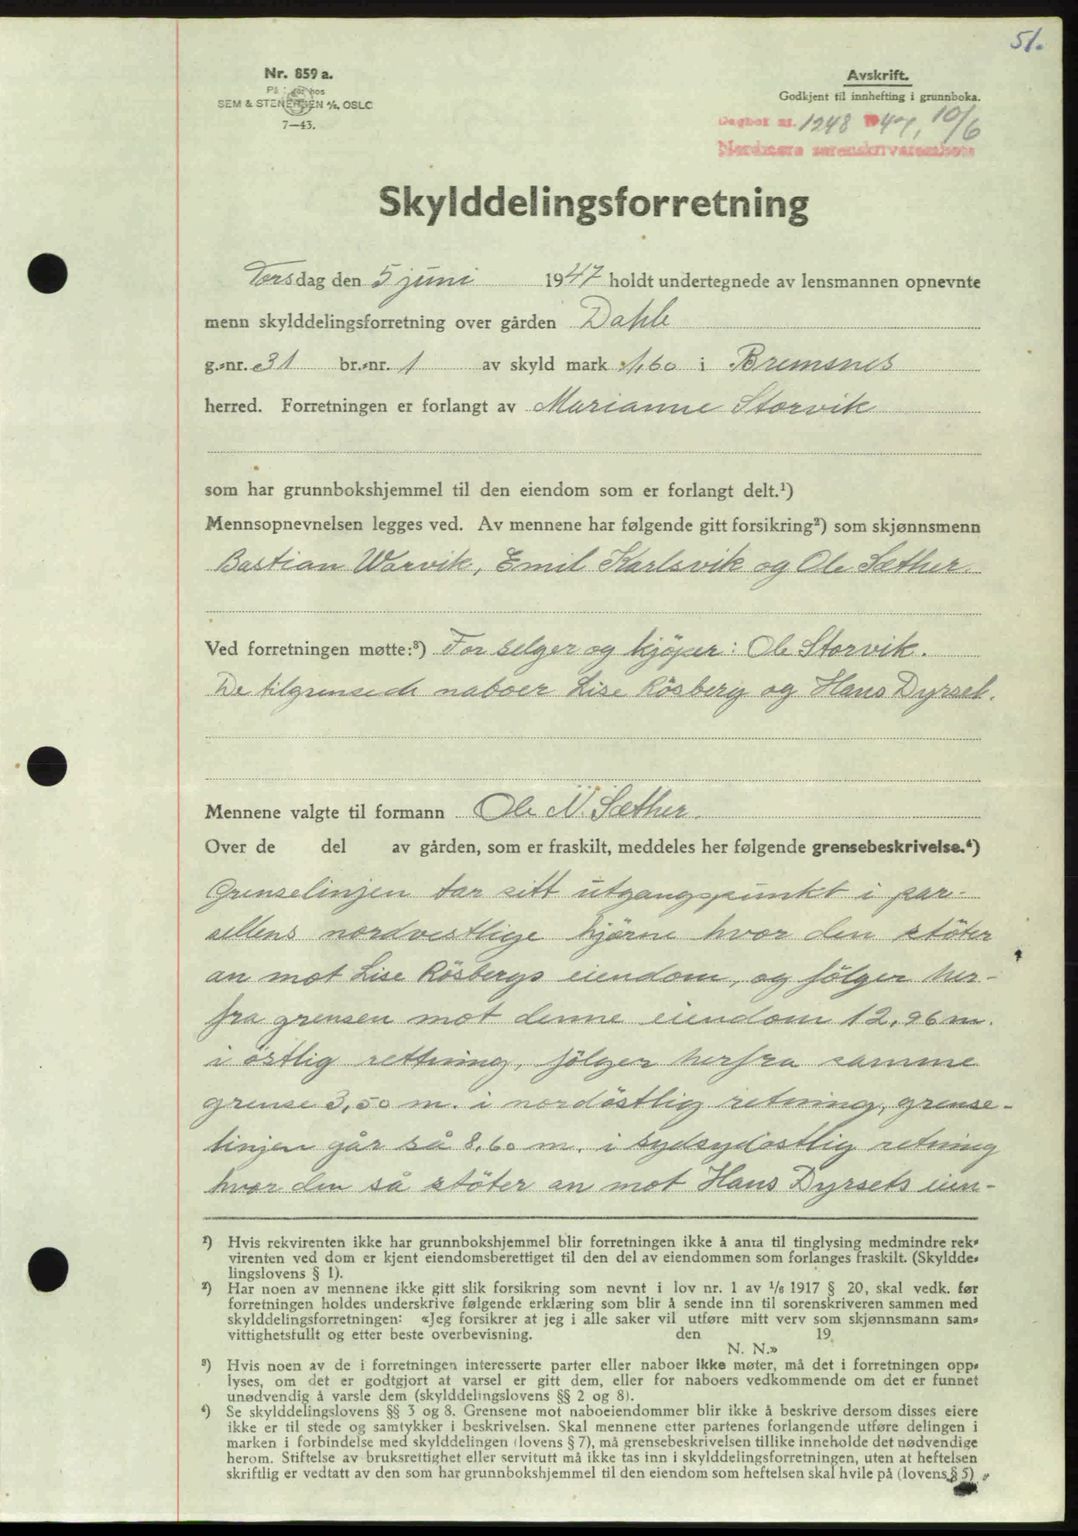 51.
Nr. 859 a.
SEM & STENERSEN A/S, OSLO
7—43.
Avskrift.
Godkjent til innhefting i grunnboka.
Dagbok nr. 1248 1947, 10/6
Nordmøre sorenskriverembete
Skylddelingsforretning
Torsdag den 5 juni 1947 holdt undertegnede av lensmannen opnevnte
menn skylddelingsforretning over gården Dahle
g.-nr. 31 br.-nr. 1 av skyld mark 1,60 i Bremsnes
herred. Forretningen er forlangt av Marianne Storvik
som har grunnbokshjemmel til den eiendom som er forlangt delt.¹)
Mennsopnevnelsen legges ved. Av mennene har følgende gitt forsikring²) som skjønnsmenn
Bastian Warvik, Emil Karlsvik og Ole Sæther.
Ved forretningen møtte:³) For selger og kjöper: Ole Storvik.
De tilgrensede naboer Lise Rösberg og Hans Dyrset.
Mennene valgte til formann Ole N. Sæther.
Over de del av gården, som er fraskilt, meddeles her følgende grensebeskrivelse.⁴)
Grenselinjen tar sitt utgangspunkt i par-
sellens nordvestlige hjørne hvor den stöter
an mot Lise Rösbergs eiendom, og fölger her-
fra grensen mot denne eiendom 12,96 m.
i östlig rettning, fölger herfra samme
grense 3,50 m. i nordöstlig retning, grense-
linjen går så 8,60 m. i sydsydostlig retning
hvor den så stöter an mot Hans Dyrsets eien-
¹) Hvis rekvirenten ikke har grunnbokshjemmel blir forretningen ikke å anta til tinglysing medmindre rek-
virenten ved dom er kjent eiendomsberettiget til den del av eiendommen som forlanges fraskilt. (Skyldde-
lingslovens § 1).
²) Har noen av mennene ikke gitt slik forsikring som nevnt i lov nr. 1 av 1/6 1917 § 20, skal vedk. før
forretningen holdes underskrive følgende erklæring som blir å sende inn til sorenskriveren sammen med
skylddelingsforretningen: «Jeg forsikrer at jeg i alle saker vil utføre mitt verv som skjønnsmann sam-
vittighetsfullt og etter beste overbevisning. den 19
N. N.»
³) Hvis noen av de i forretningen interesserte parter eller naboer ikke møter, må det i forretningen opp-
lyses, om det er godtgjort at varsel er gitt dem, eller for naboers vedkommende om det er funnet
unødvendig å varsle dem (skylddelingslovens §§ 2 og 8).
⁴) Se skylddelingslovens §§ 3 og 8. Grensene mot naboeiendommer blir ikke å beskrive dersom disses eiere
ikke er til stede og samtykker i beskrivelsen. Skal mennene etter partenes forlangende utføre delingen i
marken i forbindelse med skylddelingen (lovens § 7), må grensebeskrivelsen tillike inneholde det nødvendige
herom. Stiftelse av bruksrettighet eller servitutt må ikke tas inn i skylddelingsforretningen, uten at heftelsen
skriftlig er vedtatt av den som har grunnbokshjemmel til den eiendom som heftelsen skal hvile på (lovens § 5)